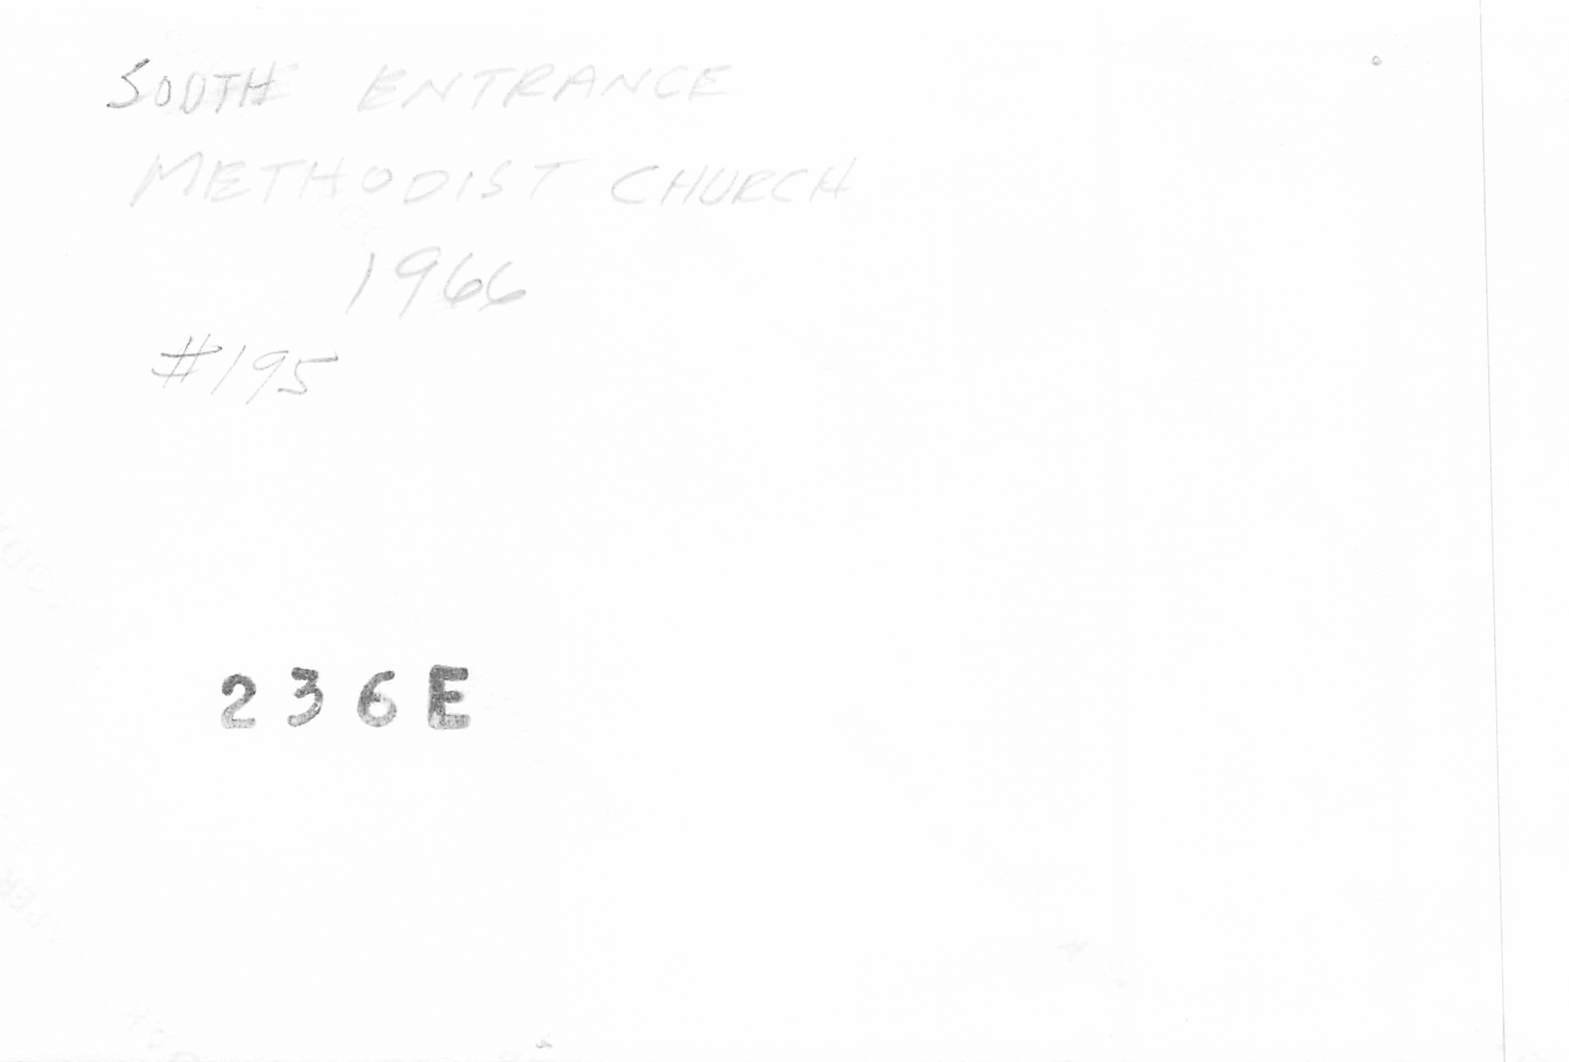 SOUTH ENTRANCE
METHODIST CHURCH
1966
#195
236E